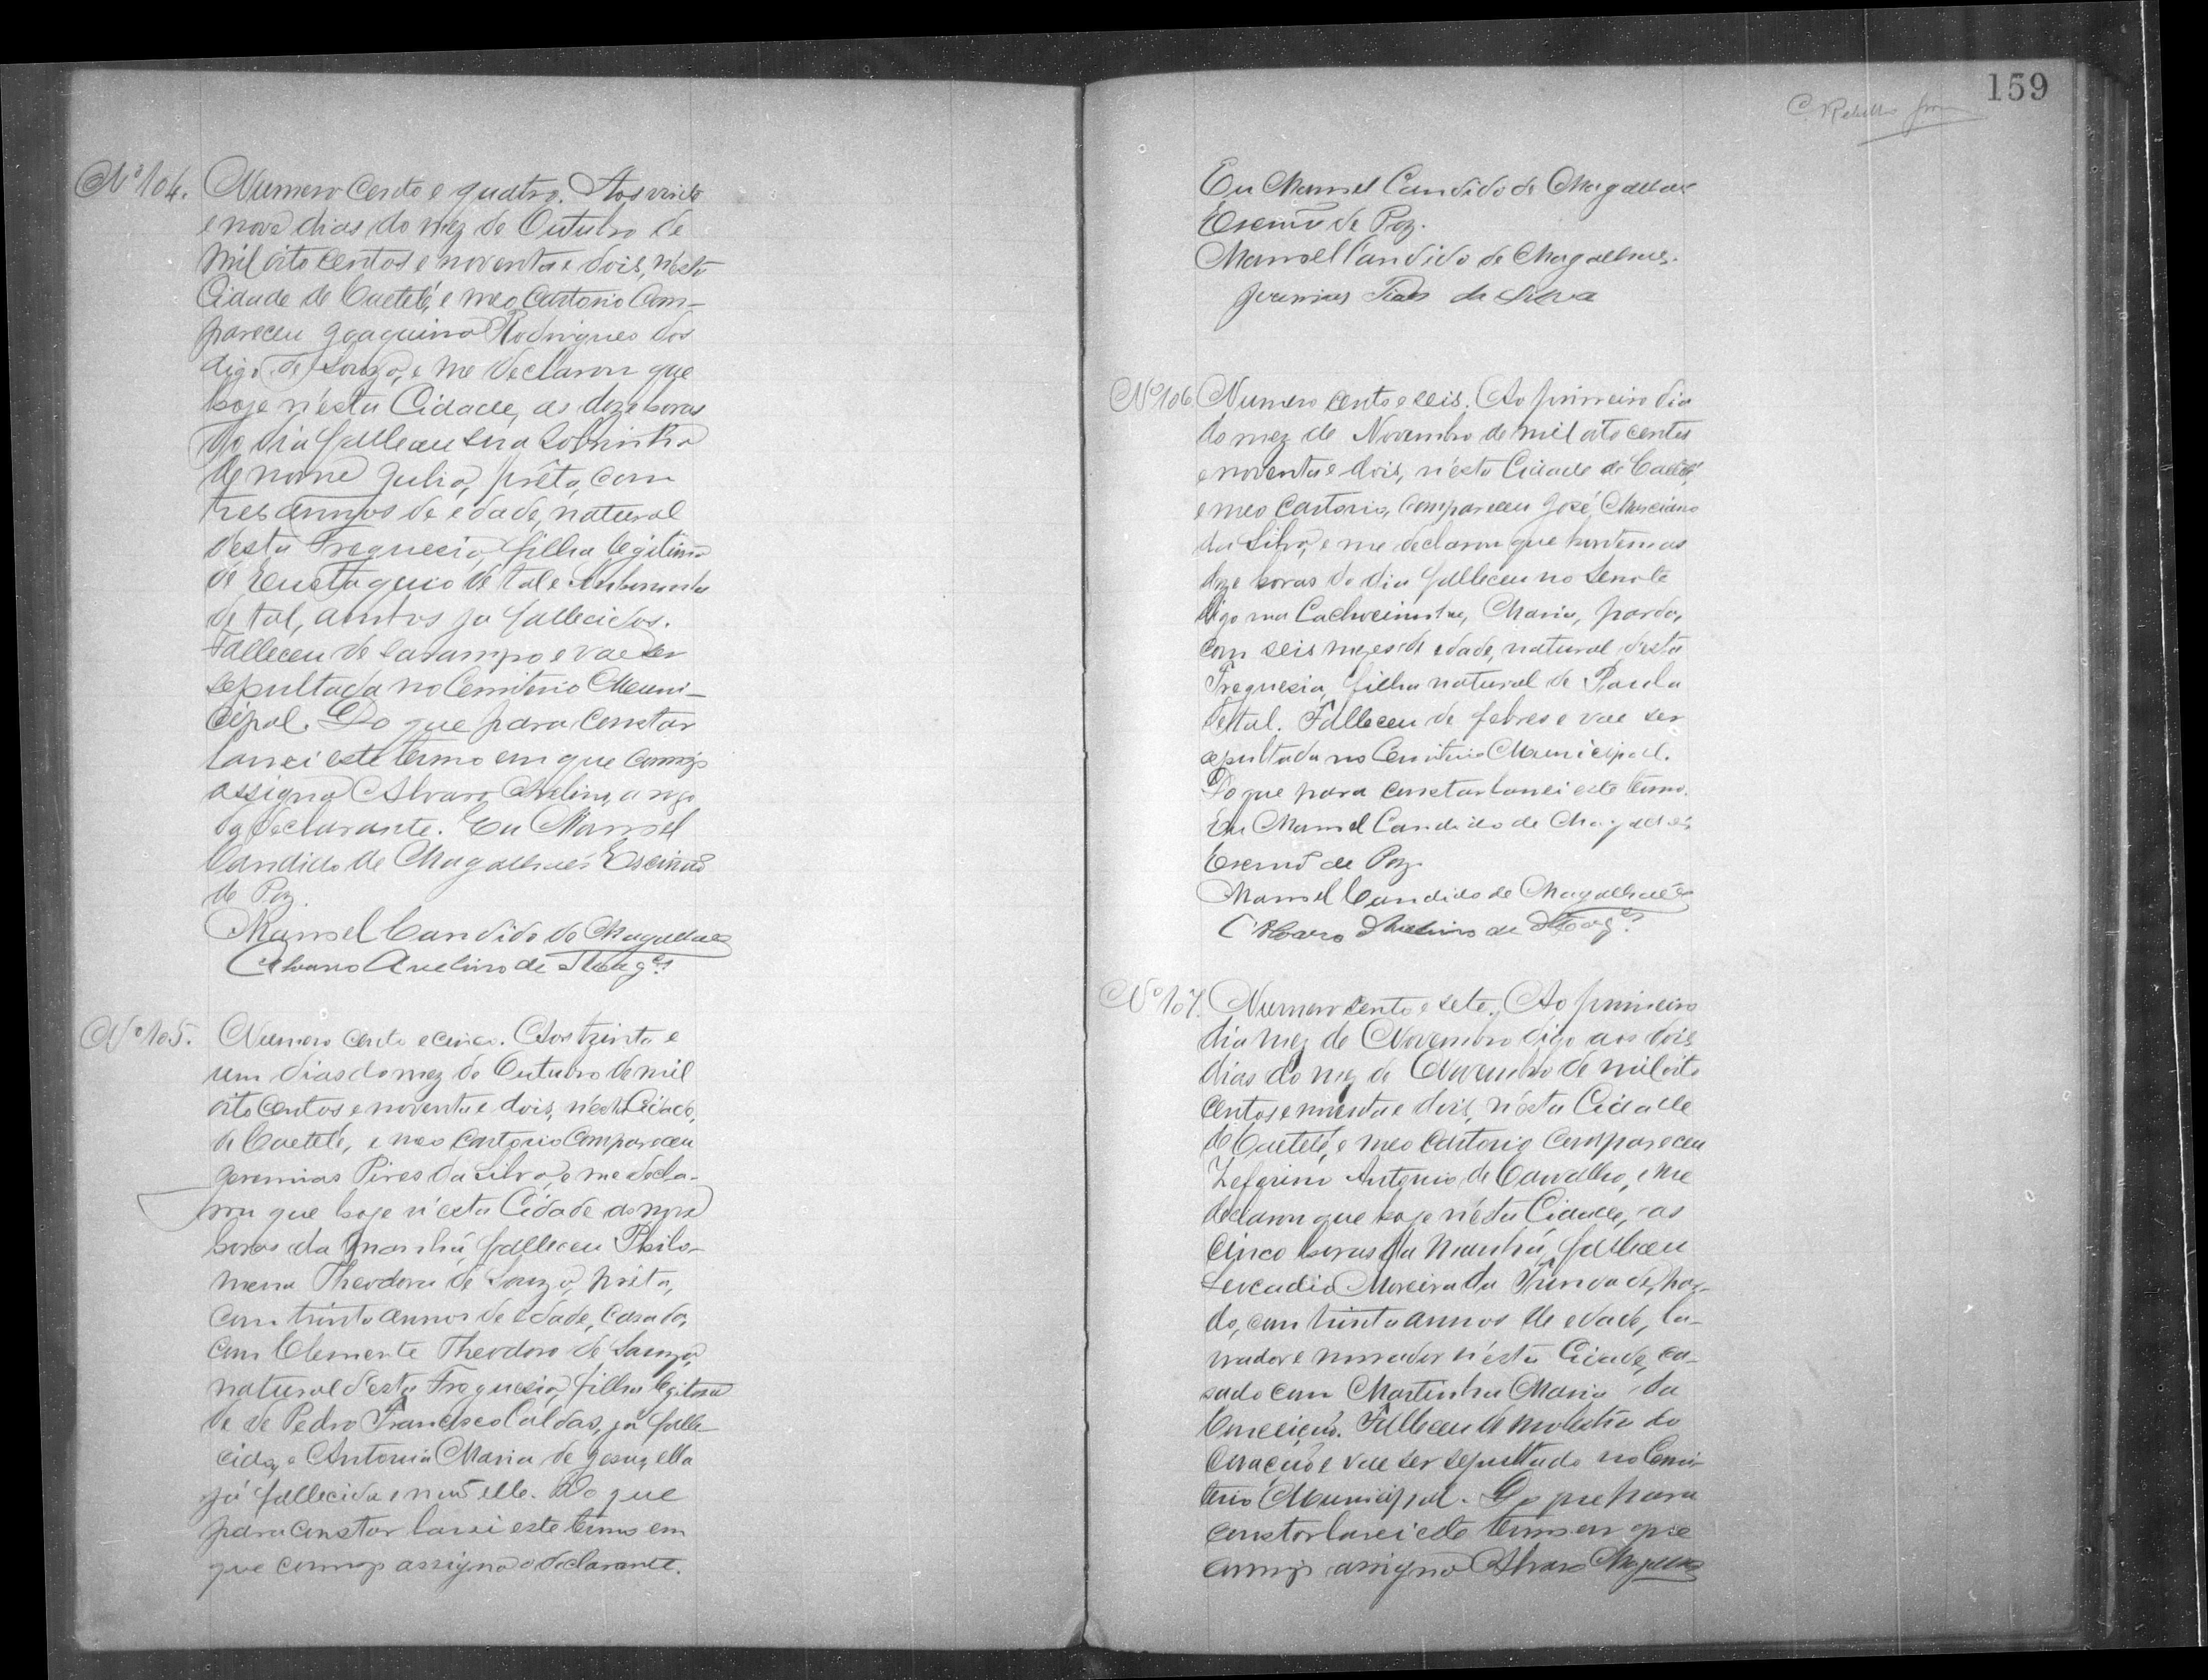 Nº 104. Numero cento e quatro. Aos vinte
e nove dias do mez de Outubro de
mil oito centos e noventa e dois, n'esta
Cidade de Caeteté, e meo Cartorio Com-
pareceu Joaquina Rodrigues dos
digo de Souza, e me declarou que
hoje n'esta Cidade, as doze horas
do dia falleceu sua sobrinha
de nome Julia, prêta, com
tres annos de edade, natural
desta Freguezia, filha legitima
de Eustaquio de tal e
de tal, ambos ja fallecidos.
Falleceu de sarampo e vae ser
sepultada no Cemiterio Muni-
cipal. Do que para constar
lavrei este termo em que comigo
assigna Alvaro Avelino, a rogo
da declarante. Eu Manoel
Candido de Magalhães Escrivão
de Paz.
Manoel Candido de Magalhães
Alvaro Avelino de Mag.es
Nº 105. Numero cento e cinco. Aos trinta e
um dias do mez de Outubro de mil
oito centos e noventa e dois, n'esta Cidade
de Caeteté, e meo Cartorio Compareceu
Geremias Pires da Silva, e me decla-
rou que hoje n'esta Cidade as nove
horas da manhã, falleceu Philo-
mena Theodora de Souza, prêta,
com trinta annos de edade, casada,
com Clemente Theodoro de Souza,
natural d'esta Freguezia, filha legitima
de de Pedro Francisco Caldas, já falle-
cida, e Antonia Maria de Jesuz, ella
já fallecida e não elle. Do que
para constar lavrei este termo em
que comigo assigna o declarante.
159
C. Rebello
Eu Manoel Candido de Magalhães
Escrivão de Paz.
Manoel Candido de Magalhães.
Jeremias Pires da Silva
Nº 106 Numero cento e seis. Ao primeiro dia
do mez de Novembro de mil oito centos
e noventa e dois, n'esta Cidade de Caeteté,
e meo Cartorio, compareceu José Marciano
da Silva, e me declarou que hontem as
doze horas do dia falleceu no Senote
digo na Cachoeirinha, Maria, parda,
com seis mezes de edade, natural desta
Freguezia, filha natural de Paula
de tal. Falleceu de febres e vae ser
sepultada no Cemiterio Municipal.
Do que para constar lavrei este termo.
Eu Manoel Candido de Magalhães
Escrivão de Paz.
Manoel Candido de Magalhães
Alvaro Avelino de Mag.es
Nº 107. Numero cento e sete. Ao primeiro
dia mez de Novembro digo aos dois
dias do mez de Novembro de mil oito
centos e noventa e dois, n'esta Cidade
de Caeteté, e meo Cartorio compareceu
Zeferino Antonio de Carvalho, e me
declarou que hoje n'esta Cidade, as
cinco horas da manhã, falleceu
Leocadio Moreira da Trindade, par-
do, com trinta annos de edade, la-
vrador e morador n'esta Cidade, ca-
sado com Martinha Maria da
Conceição. Falleceu de molestia do
coração e vae ser sepultado no Cemi-
terio Municipal. Do que para
constar lavrei este termo em que
comigo assigna Alvaro Magalhães